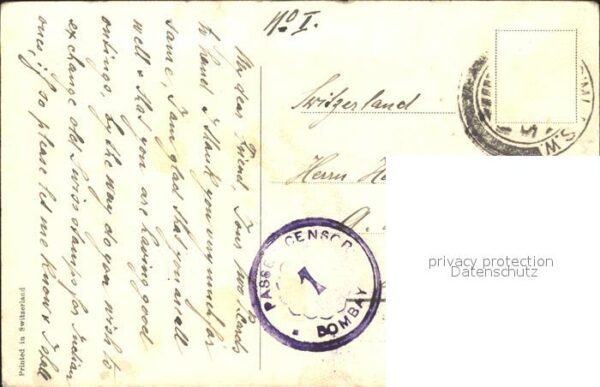 No I.
My dear Friend, Yours two Cards
to hand & thank you very much for
same, I am glad that you are all
well & that you are having good
outings, by the way do you wish to
exchange old Swiss stamps for Indian
ones, if so please let me know & I shall
Printed in Switzerland
Switzerland
Herrn
PASSED CENSOR
1
BOMBAY
S.W.
privacy protection
Datenschutz